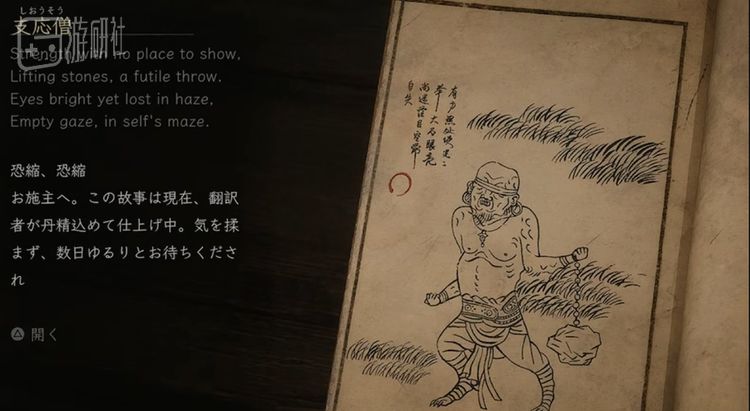 しおうそう
支応僧
游研社
Strength with no place to show,
Lifting stones, a futile throw.
Eyes bright yet lost in haze,
Empty gaze, in self's maze.
恐縮、恐縮
お施主へ。この故事は現在、翻訳
者が丹精込めて仕上げ中。気を揉
まず、数日ゆるりとお待ちくださ
れ
開く
有力無处使
大石眼亮
自失